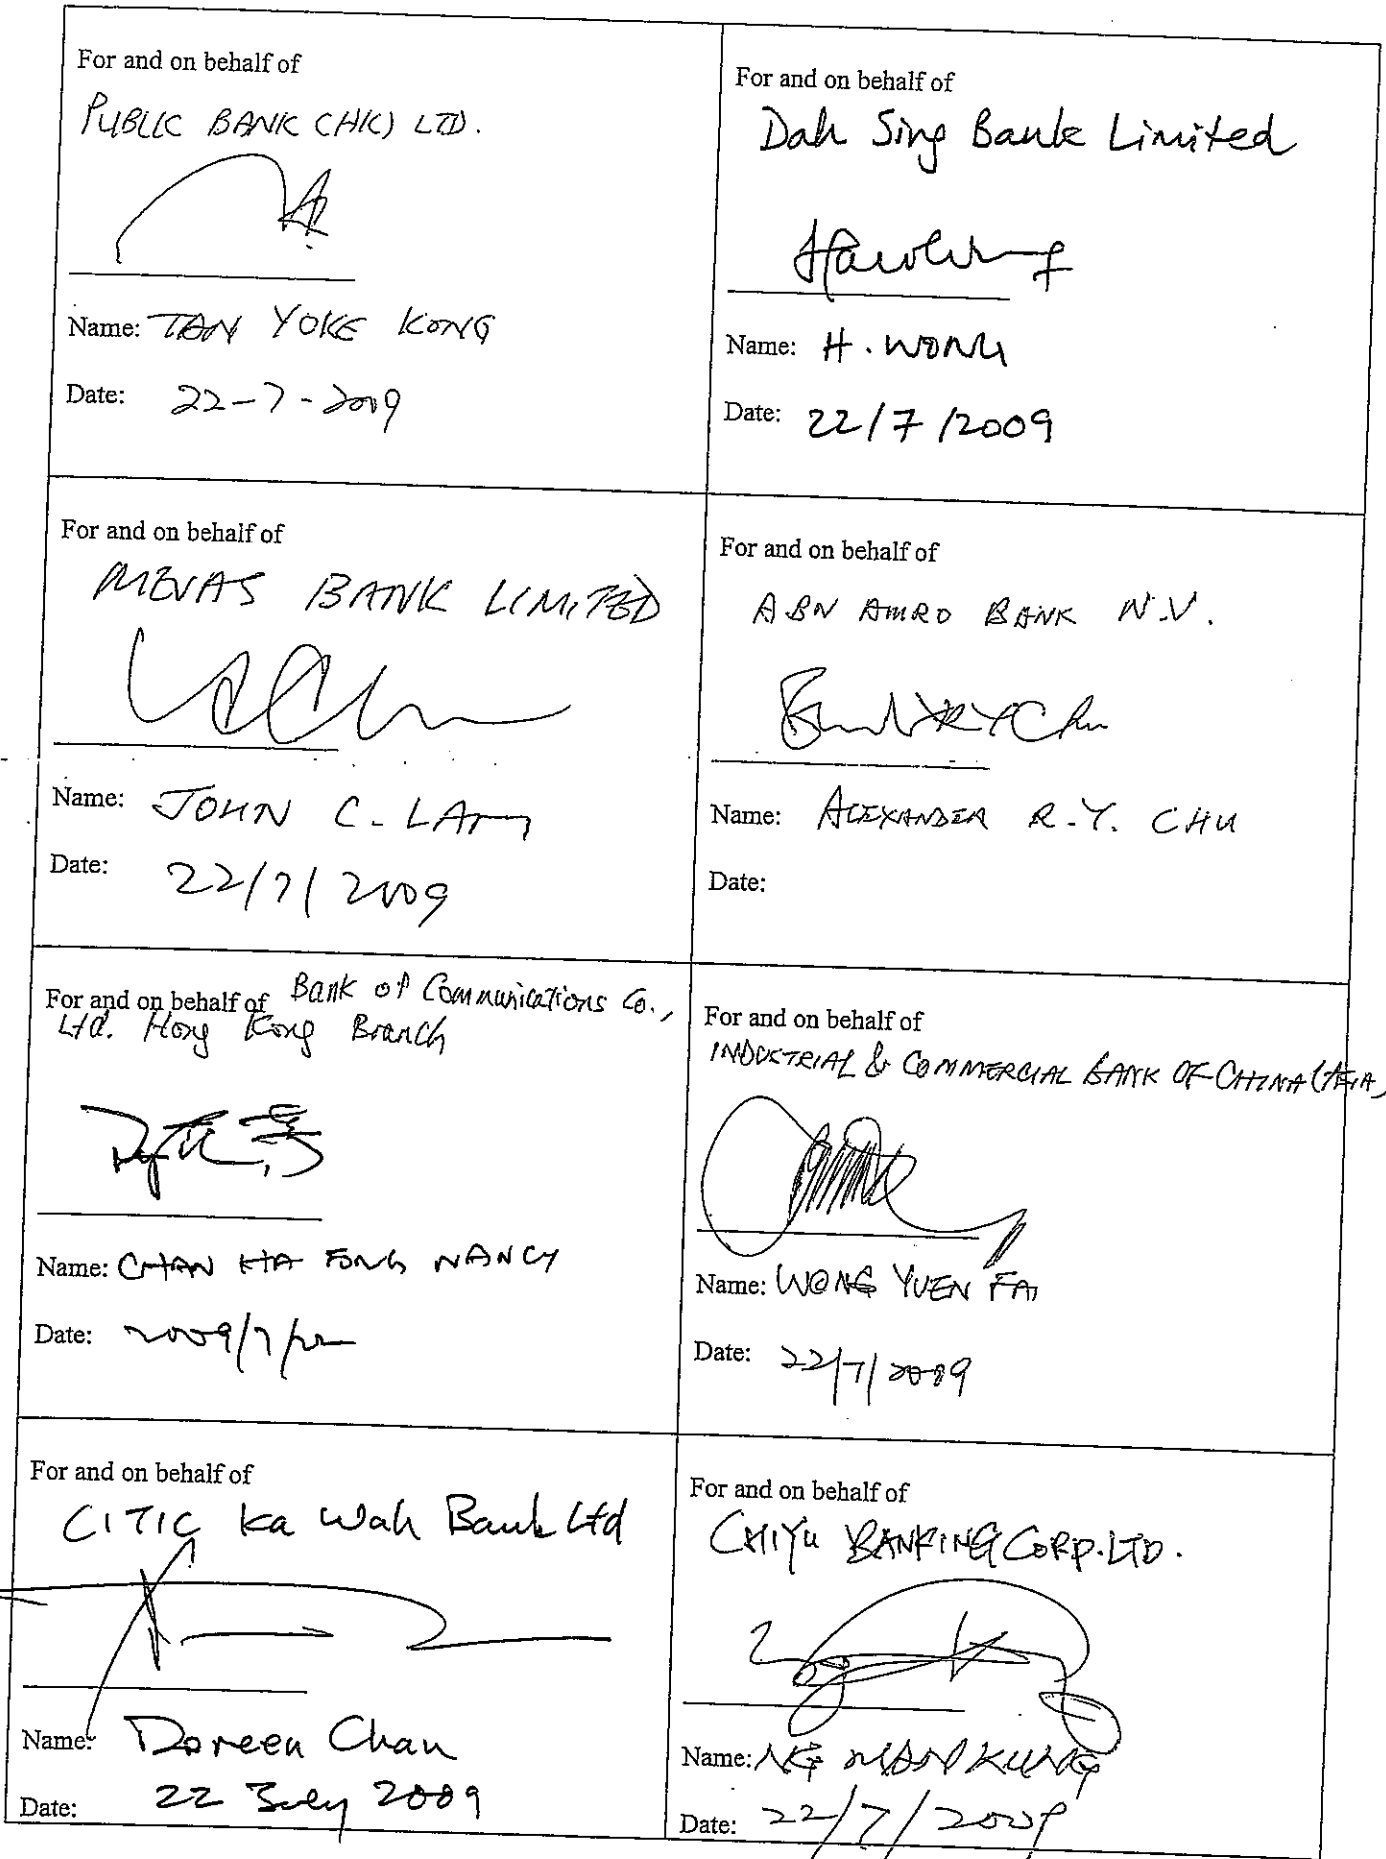 For and on behalf of
PUBLIC BANK (HK) LTD.
Name: TAN YOKE KONG
Date: 22-7-2009
For and on behalf of
Dah Sing Bank Limited
Name: H. WONG
Date: 22/7/2009
For and on behalf of
MEVAS BANK LIMITED
Name: JOHN C. LAM
Date: 22/7/2009
For and on behalf of
ABN AMRO BANK N.V.
Name: ALEXANDER R.Y. CHU
Date:
For and on behalf of Bank of Communications Co.,
Ltd. Hong Kong Branch
Name: CHAN HA FONG NANCY
Date: 2009/7/22
For and on behalf of
INDUSTRIAL & COMMERCIAL BANK OF CHINA (ASIA)
Name: WONG YUEN FAI
Date: 22/7/2009
For and on behalf of
CITIC Ka Wah Bank Ltd
Name: Doreen Chan
Date: 22 July 2009
For and on behalf of
CHIYU BANKING CORP. LTD.
Name: NG MAN KUNG
Date: 22/7/2009